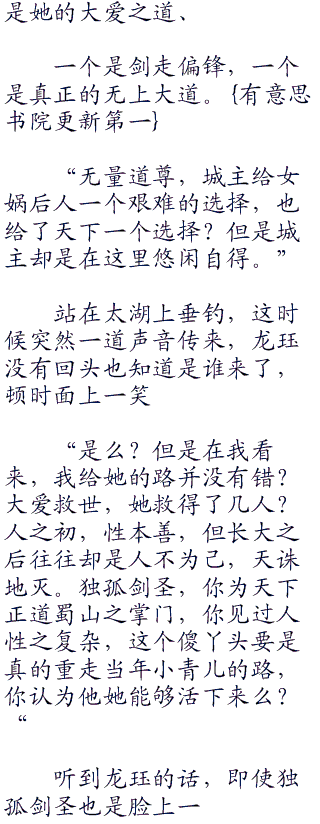 是她的大爱之道、
一个是剑走偏锋，一个
是真正的无上大道。{有意思
书院更新第一}
“无量道尊，城主给女
娲后人一个艰难的选择，也
给了天下一个选择？但是城
主却是在这里悠闲自得。”
站在太湖上垂钓，这时
候突然一道声音传来，龙珏
没有回头也知道是谁来了，
顿时面上一笑
“是么？但是在我看
来，我给她的路并没有错？
大爱救世，她救得了几人？
人之初，性本善，但长大之
后往往却是人不为己，天诛
地灭。独孤剑圣，你为天下
正道蜀山之掌门，你见过人
性之复杂，这个傻丫头要是
真的重走当年小青儿的路，
你认为他她能够活下来么？
“
听到龙珏的话，即使独
孤剑圣也是脸上一